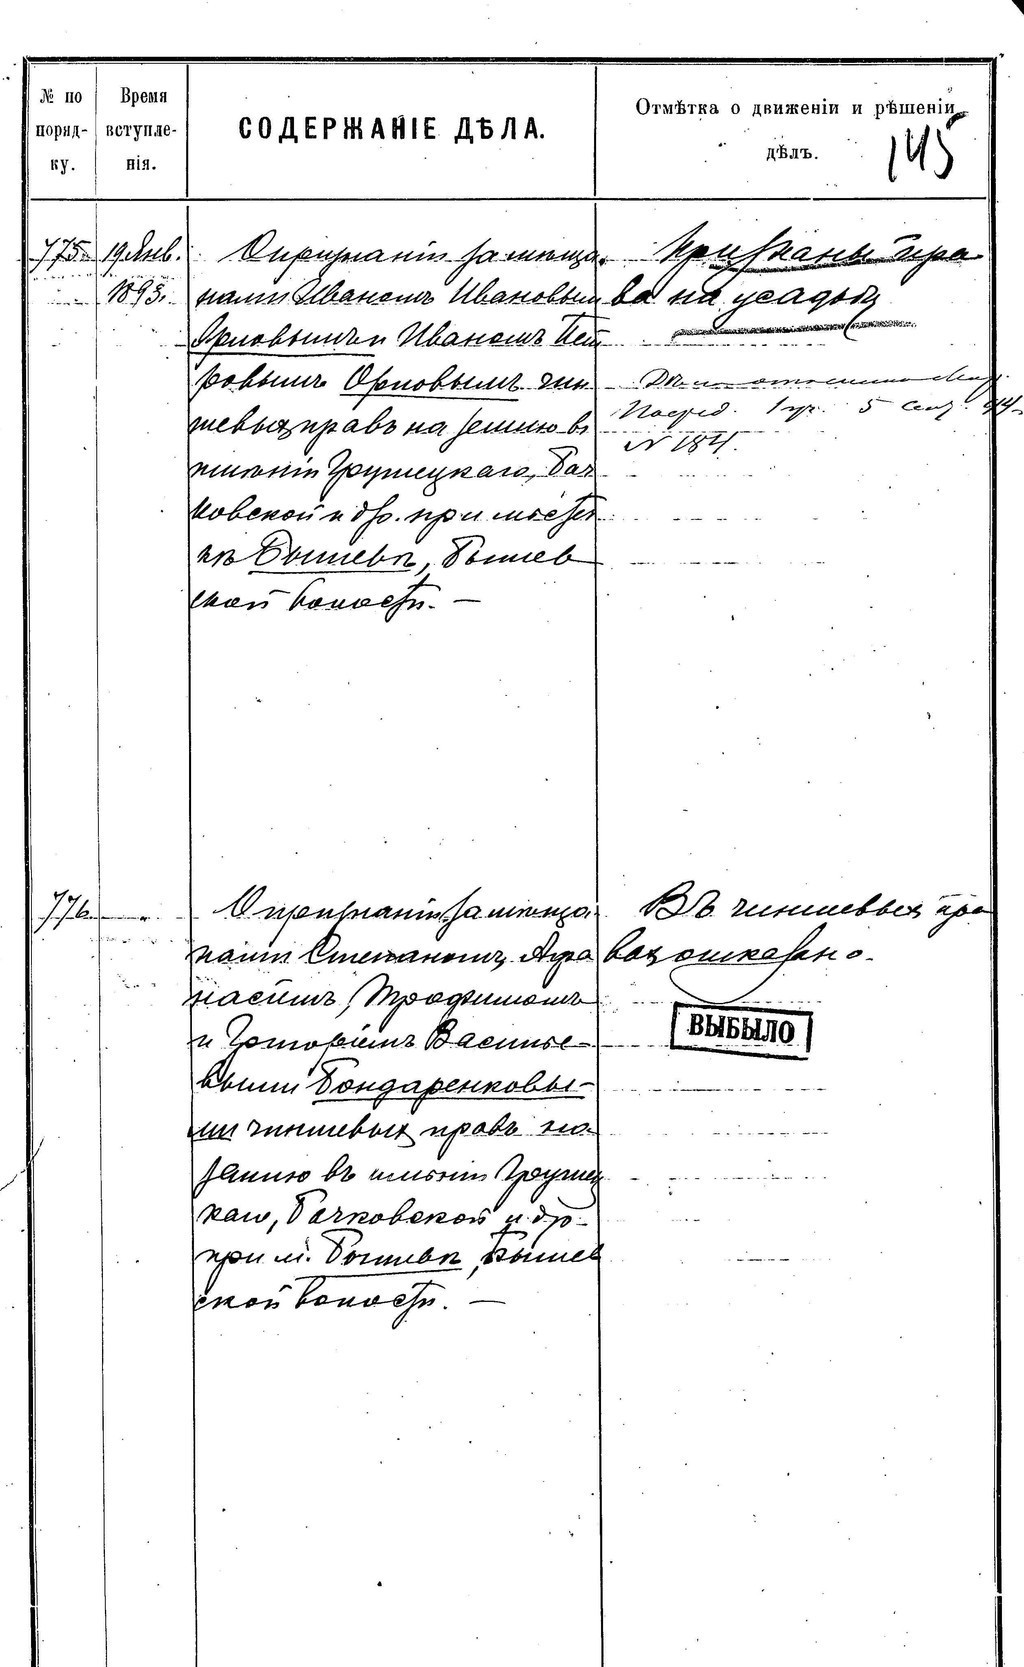 № по поряд-ку.
Время вступле-нія.
СОДЕРЖАНІЕ ДѢЛА.
Отмѣтка о движеніи и рѣшеніи дѣлъ.
145
775. 19 Янв. 1893.
О признаніи за мѣща-
нами Иваномъ Ивановым
Орловымъ и Иваномъ Пет
ровымъ Орловымъ чин
шевыхъ правъ на землю въ
имѣніи Грушецкаго, Бач
ковской и др. при мѣстеч
кѣ Бышевѣ, Бышев
ской волости. —
Признаны пра
ва на усадьбу
Посред. 1 уч. 5 сент. 94
№ 184.
776. "
О признаніи за мѣща-
нами Степаномъ, Афа
насіемъ, Трофимомъ
и Григоріемъ Василье-
выми Бондаренковы-
ми чиншевыхъ правъ на
землю въ имѣніи Грушец
каго, Бачковской и др.
при м. Бышевѣ, Бышев
ской волости. —
Въ чиншевыхъ пра
вахъ отказано.
ВЫБЫЛО